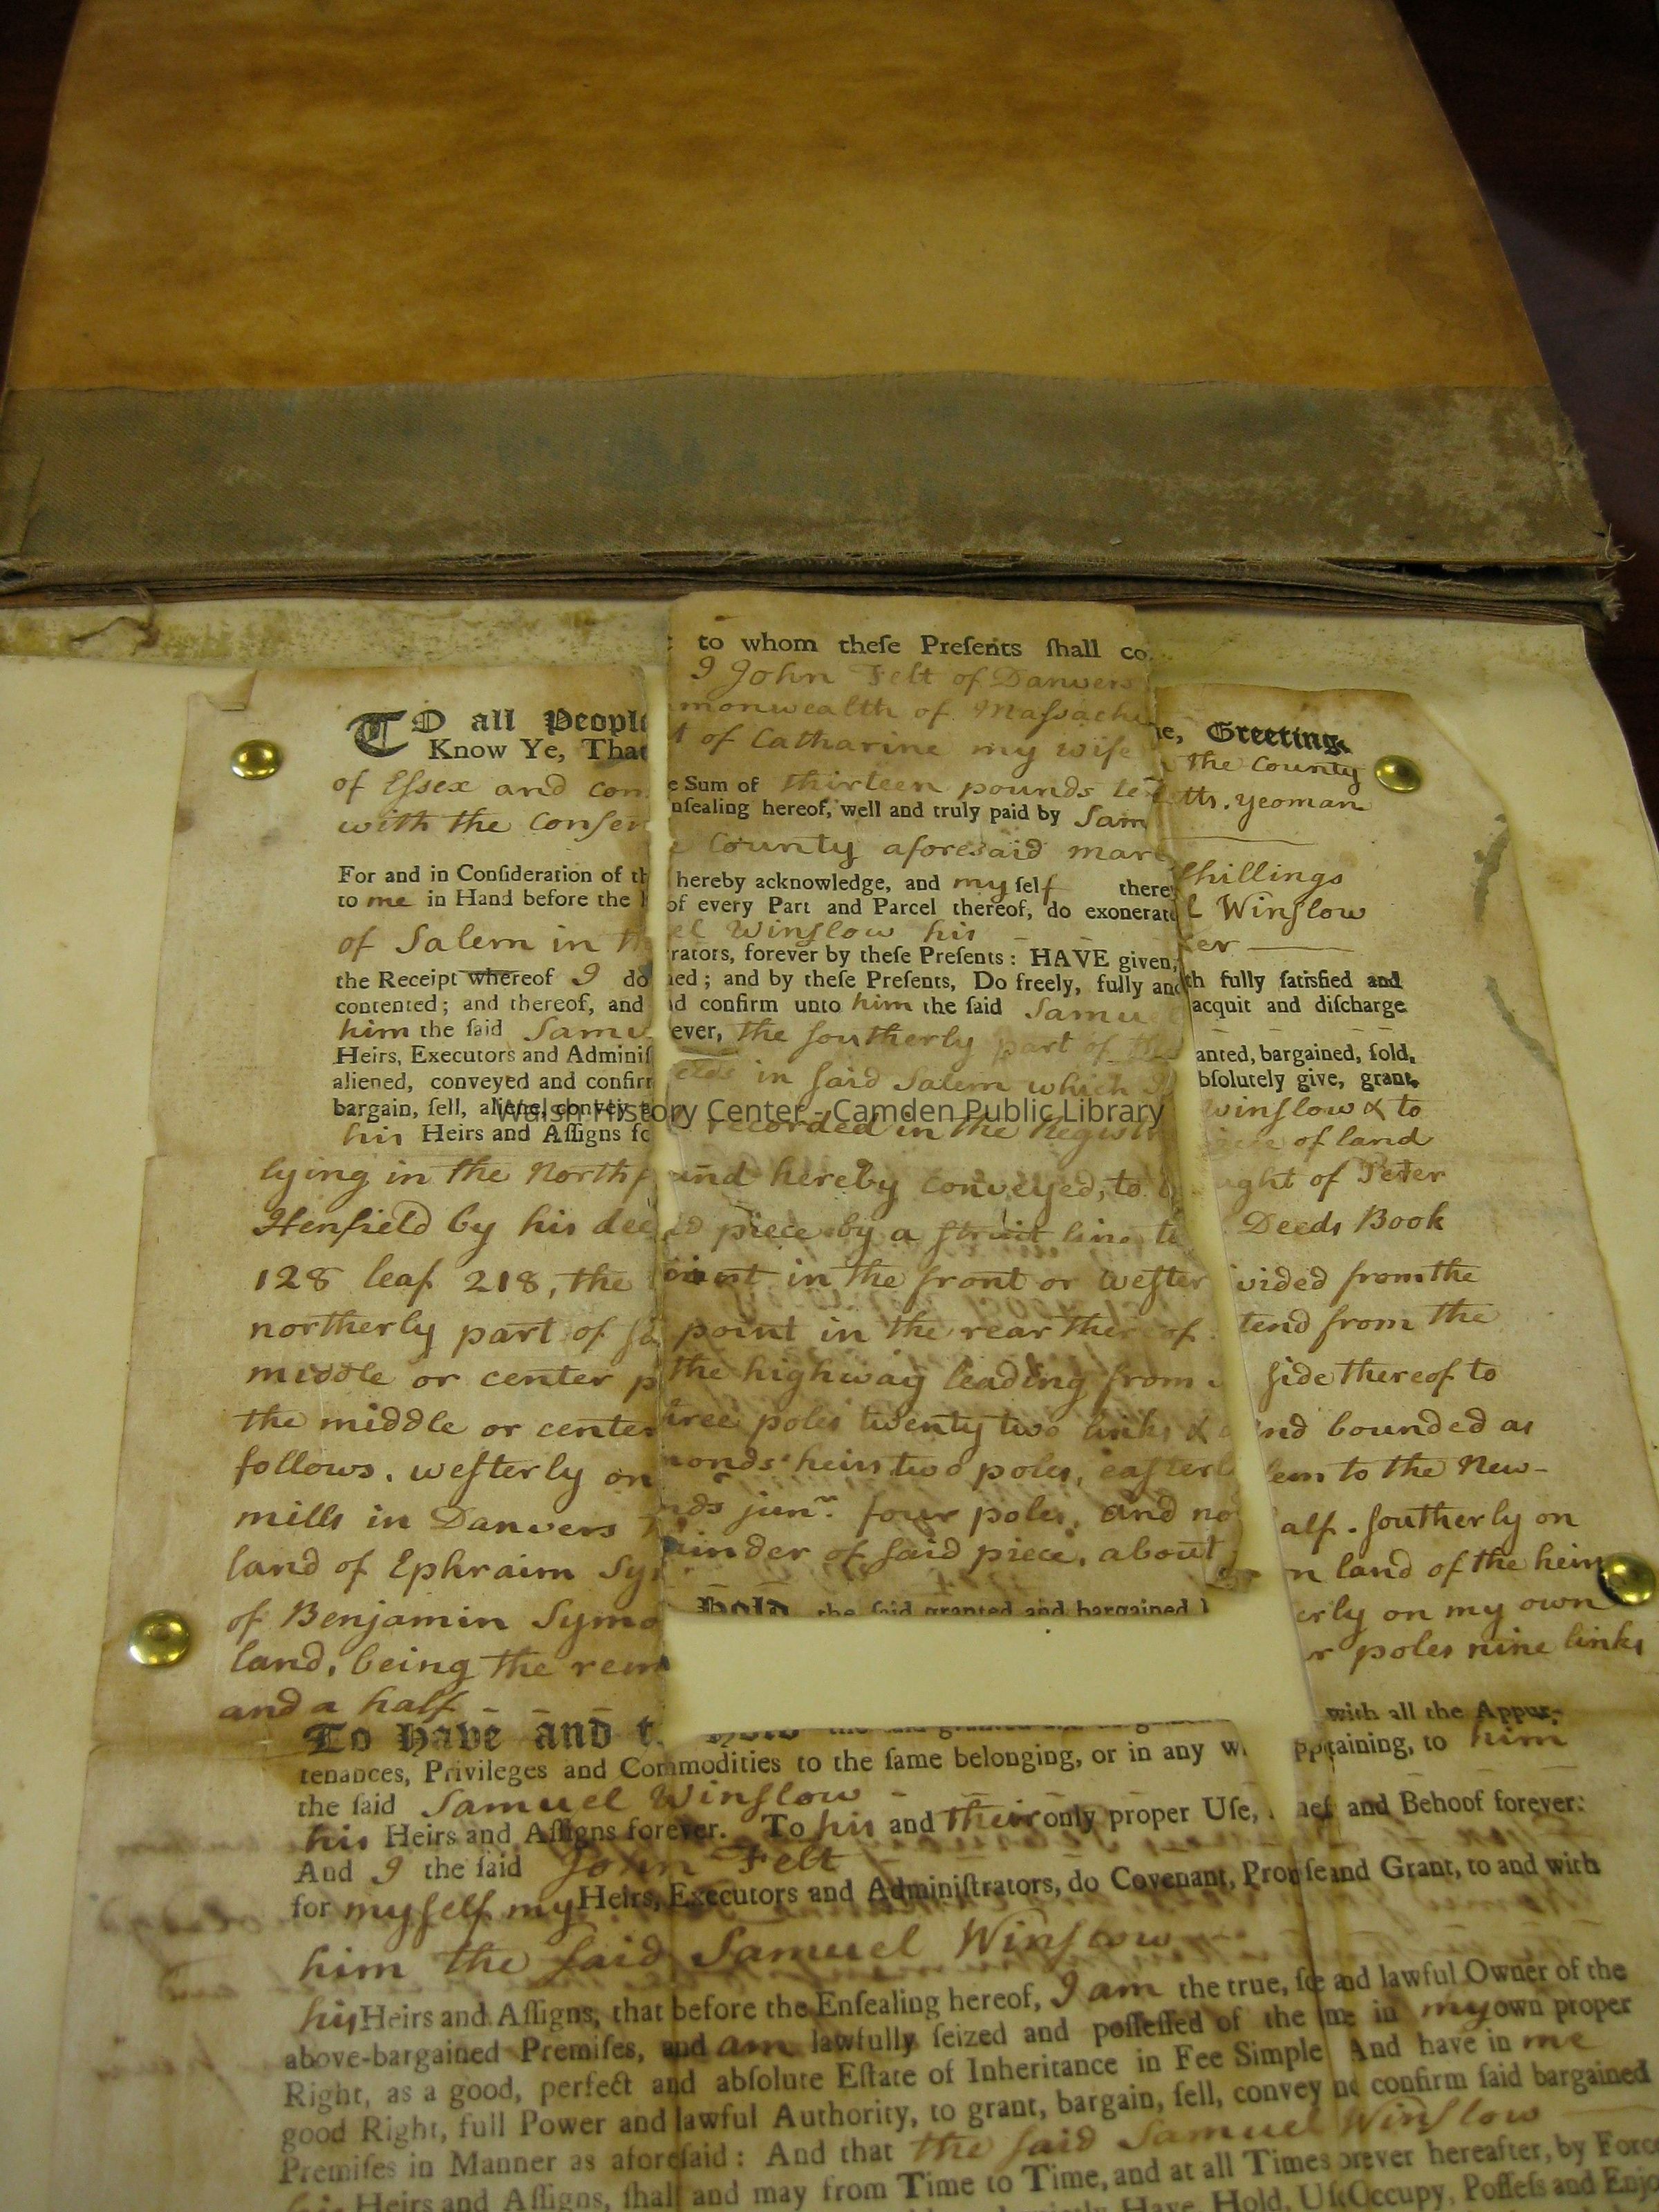 TO all People to whom theſe Preſents ſhall co me, Greeting.
Know Ye, That I John Felt of Danvers the County
of Eſſex and com monwealth of Maſsachu tts. yeoman
with the Conſen t of Catharine my wife
For and in Conſideration of th e Sum of thirteen pounds te ſhillings
to me in Hand before the nſealing hereof, well and truly paid by Sam l Winſlow
of Salem in th e County aforesaid mar er
the Receipt whereof I do hereby acknowledge, and my ſelf there th fully ſatisfied and
contented; and thereof, and of every Part and Parcel thereof, do exonerate acquit and diſcharge
him the ſaid Samu el Winſlow his
Heirs, Executors and Adminiſ rators, forever by theſe Preſents: HAVE given, anted, bargained, ſold,
aliened, conveyed and confirm ned; and by theſe Preſents, Do freely, fully and bſolutely give, grant,
bargain, ſell, aliene, convey a nd confirm unto him the ſaid Samu Winſlow & to
his Heirs and Aſſigns fo ever, the ſoutherly part of the iece of land
lying in the North f ields in ſaid Salem which I ught of Peter
Walsh History Center - Camden Public Library
Henfield by his dee d recorded in the Regiſtr Deeds Book
128 leaf 218, the und hereby conveyed, to b vided from the
northerly part of ſa id piece by a ſtrait line to tend from the
middle or center p oint in the front or weſter ſide thereof to
the middle or center point in the rear thereof nd bounded as
follows, weſterly on the highway leading from lem to the New-
mills in Danvers t hree poles twenty two links & a alf. ſoutherly on
land of Ephraim Sy monds heirs two poles, eaſterl n land of the heirs
of Benjamin Symo nds junr. four poles, and no erly on my own
land, being the rem ainder of ſaid piece, about r poles nine links
and a half
To Have and t Hold the ſaid granted and bargained with all the Appur-
tenances, Privileges and Commodities to the ſame belonging, or in any w ppertaining, to him
the ſaid Samuel Winſlow
his Heirs and Aſſigns forever. To his and their only proper Uſe, nef and Behoof forever:
And I the ſaid John Felt
for myſelf my Heirs, Executors and Adminiſtrators, do Covenant, Promiſe and Grant, to and with
him the ſaid Samuel Winſlow
his Heirs and Aſſigns, that before the Enſealing hereof, I am the true, ſole and lawful Owner of the
above-bargained Premiſes, and am lawfully ſeized and poſſeſſed of the me in my own proper
Right, as a good, perfect and abſolute Eſtate of Inheritance in Fee Simple And have in me
good Right, full Power and lawful Authority, to grant, bargain, ſell, convey nd confirm ſaid bargained
Premiſes in Manner as aforeſaid: And that the ſaid Samuel Winſlow
his Heirs and Aſſigns, ſhall and may from Time to Time, and at all Times orever hereafter, by Force
Have, Hold, Uſe, Occupy, Poſſeſs and Enjo